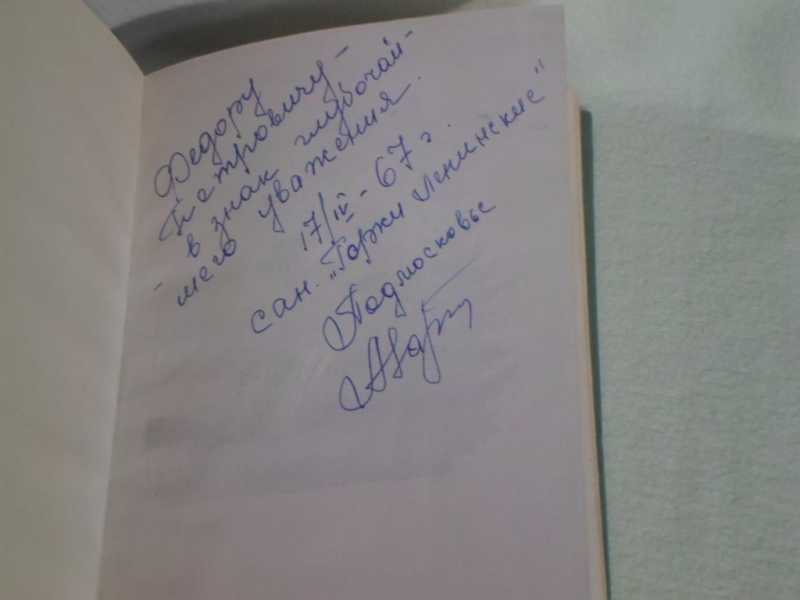 Федору
Петровичу -
в знак глубочай-
шего уважения.
17/IV - 67 г.
сан. „Горки Ленинские"
Подмосковье